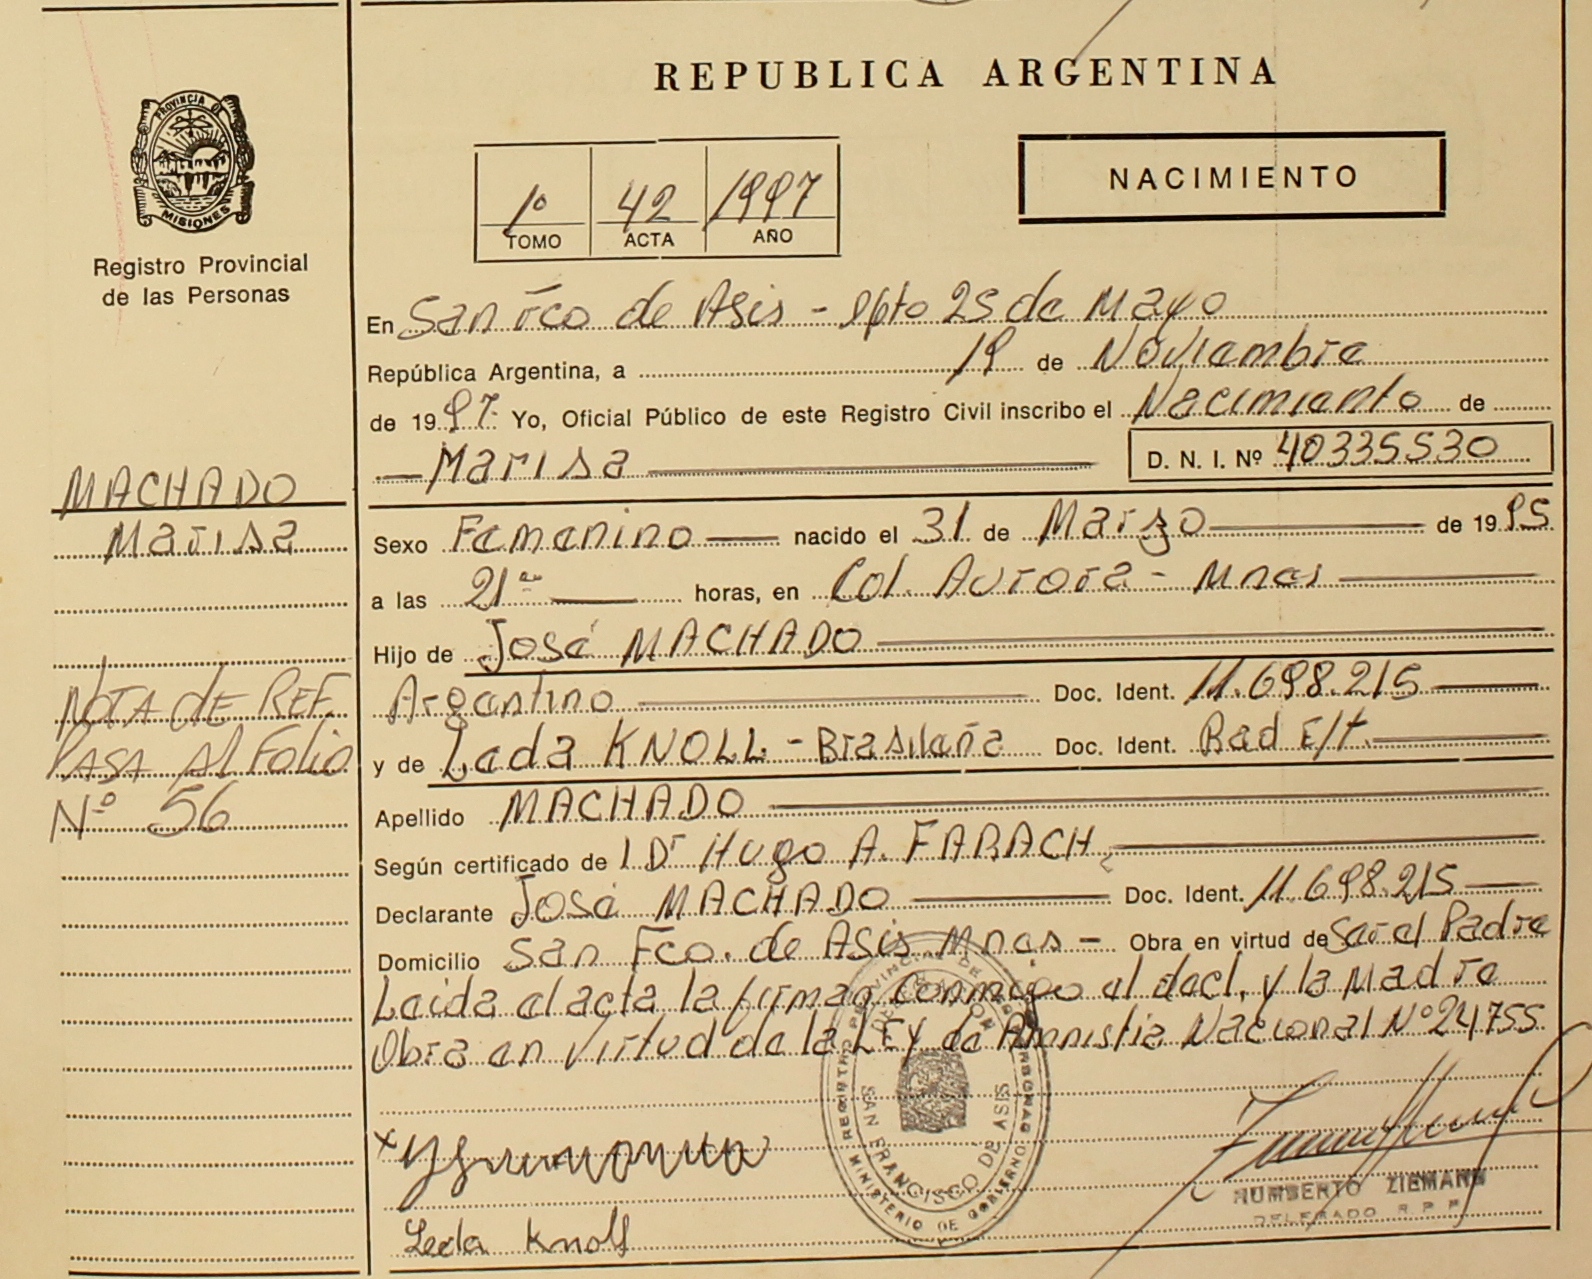 REPUBLICA ARGENTINA
PROVINCIA DE
MISIONES
Registro Provincial
de las Personas
1º 42 1997
TOMO ACTA AÑO
NACIMIENTO
En San Fco de Asis - Dpto 25 de Mayo
República Argentina, a 19 de Noviembre
de 1997. Yo, Oficial Público de este Registro Civil inscribo el Nacimiento de
Marisa D. N. I. Nº 40335530
MACHADO
Marisa
Sexo Femenino nacido el 31 de Marzo de 1995
a las 21 horas, en Col. Aurora - Mnes
Hijo de José MACHADO
Argentino Doc. Ident. 11.698.215
y de Leda KNOLL - Brasileña Doc. Ident. Rad E/t.
NOTA de REF.
PASA Al Folio
Nº 56
Apellido MACHADO
Según certificado de Dr Hugo A. FARACH
Declarante José MACHADO Doc. Ident. 11.698.215
Domicilio San Fco. de Asis Mnes - Obra en virtud de Ser el Padre
Leida el acta la firman conmigo el decl. y la Madre
Obra en virtud de la LEY de Amnistia Nacional Nº 24755
REGISTRO PROVINCIAL DE LAS PERSONAS
DELEGACION
SAN FRANCISCO DE ASIS
MINISTERIO DE GOBIERNO
HUMBERTO ZIEMANN
DELEGADO R.P.P.
Leda Knoll